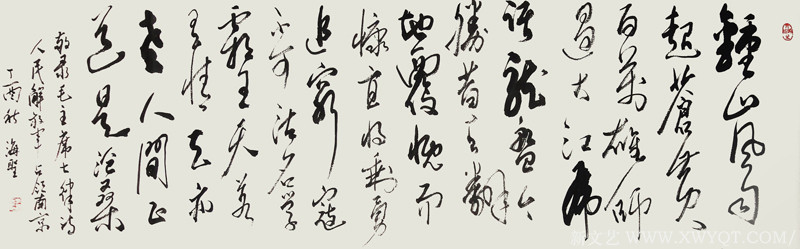 鍾山风雨
起蒼黄
百萬雄师
過大江虎
踞龙盘今
勝昔天翻
地覆慨而
慷宜将剩勇
追窮寇
不可沽名学
霸王天若
有情天亦
老人間正
道是滄桑
敬录毛主席七律诗
人民解放军占领南京
丁酉秋 海
WWW.XWYQT.COM/